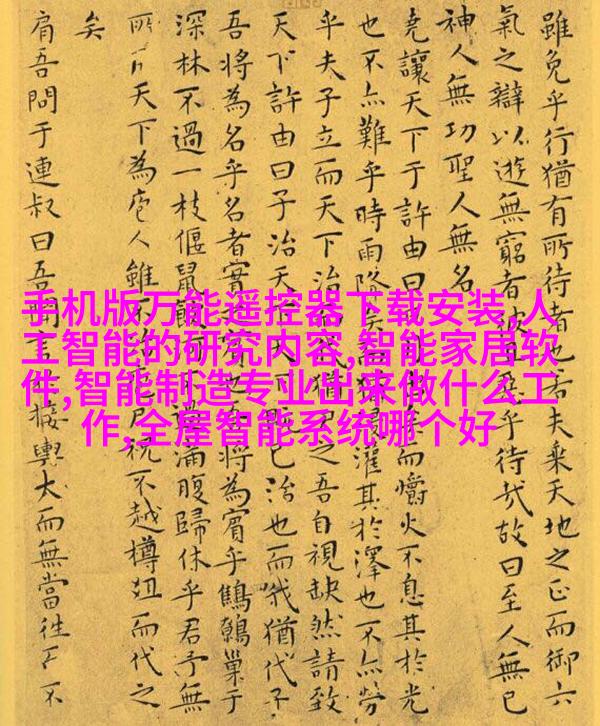 手机版万能遥控器下载安装,人
工智能的研究内容,智能家居软
件,智能制造专业出来做什么工
作,全屋智能系统哪个好
雖免乎行猶有所待者也若夫乘天地之正而御六
氣之辯以遊無窮者彼乎待哉故曰至人無已
神人無功聖人無名
堯讓天下于許由曰而爝火不息其於光
也不亦難乎時雨降矣灌其於澤也不亦勞
乎夫子立而天下治猶之吾自視缺然請致
天下許由曰子治天下已治也而我猶代子
吾將為名乎名者實將為賓乎鷦鷯巢于
深林不過一枝偃鼠飲過滿腹歸休乎君予無
所用天下為庖人雖不治尸祝不越樽俎而代之
矣
肩吾問于連叔曰吾聞言接輿大而無當往而不